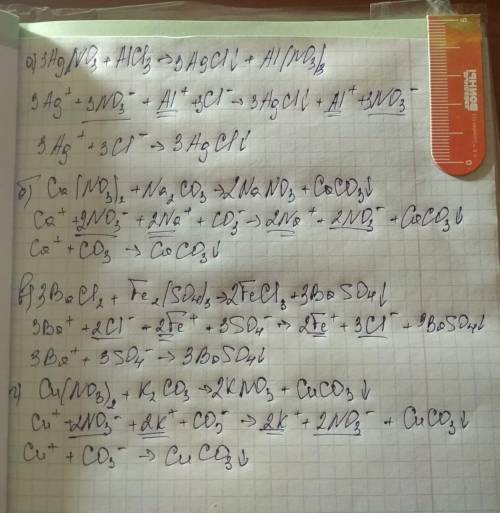 а) 3AgNO₃ + AlCl₃ → 3AgCl↓ + Al(NO₃)₃
3Ag⁺ + 3NO₃⁻ + Al⁺ + 3Cl⁻ → 3AgCl↓ + Al⁺ + 3NO₃⁻
3Ag⁺ + 3Cl⁻ → 3AgCl↓
б) Ca(NO₃)₂ + Na₂CO₃ → 2NaNO₃ + CaCO₃↓
Ca⁺ + 2NO₃⁻ + 2Na⁺ + CO₃⁻ → 2Na⁺ + 2NO₃⁻ + CaCO₃↓
Ca⁺ + CO₃ → CaCO₃↓
в) 3BaCl₂ + Fe₂(SO₄)₃ → 2FeCl₃ + 3BaSO₄↓
3Ba⁺ + 2Cl⁻ + 2Fe⁺ + 3SO₄⁻ → 2Fe⁺ + 3Cl⁻ + 3BaSO₄↓
3Ba⁺ + 3SO₄⁻ → 3BaSO₄↓
г) Cu(NO₃)₂ + K₂CO₃ → 2KNO₃ + CuCO₃↓
Cu⁺ + 2NO₃⁻ + 2K⁺ + CO₃⁻ → 2K⁺ + 2NO₃⁻ + CuCO₃↓
Cu⁺ + CO₃⁻ → CuCO₃↓